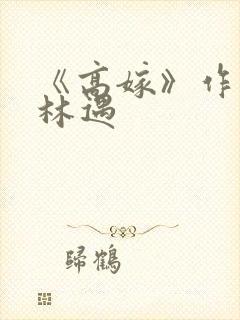 《高嫁》作
林遇
歸鶴